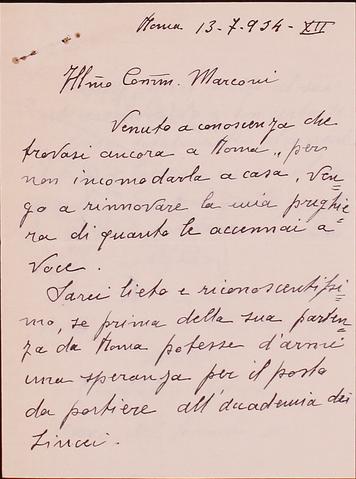 Roma 13-7-934-XII
Ill̃mo Com̃m. Marconi
Venuto a conoscenza che
trovasi ancora a Roma, per
non incomodarla a casa, ven=
go a rinnovare la mia preghie=
ra di quanto le accennai a
voce.
Sarei lieto e riconoscentissi=
mo, se prima della sua parten=
za da Roma potesse d'armi
una speranza per il posto
da portiere all'accademia dei
Lincei.